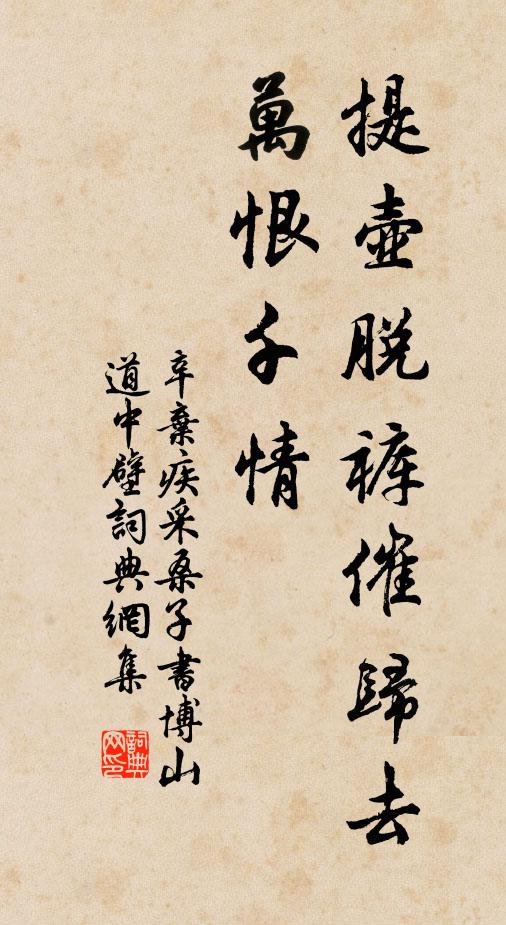 提壺脱褲催歸去
萬恨千情
辛棄疾采桑子書博山
道中壁詞典網集
詞典
网印